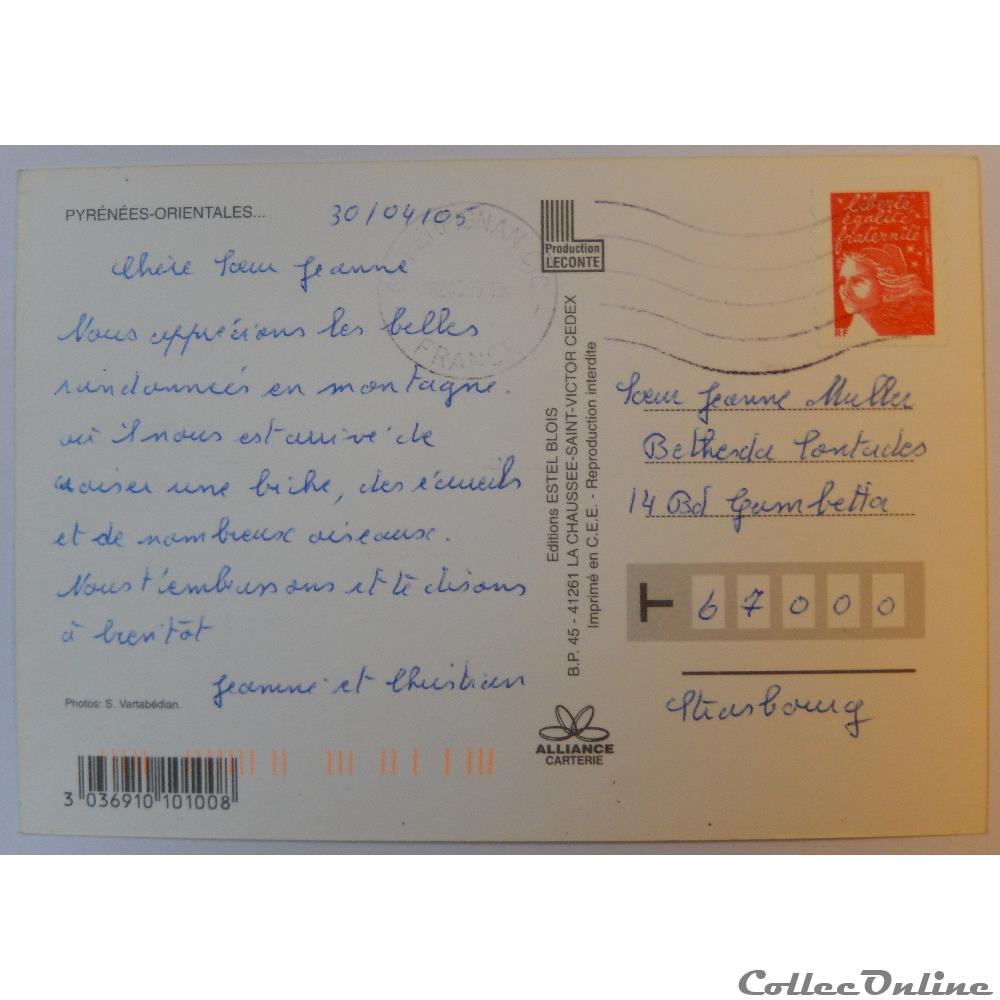 PYRÉNÉES-ORIENTALES...
30/04/05
Chère Sœur Jeanne
Nous apprécions les belles
randonnées en montagne.
où il nous est arrivé de
croiser une biche, des écureuils
et de nombreux oiseaux.
Nous t'embrassons et te disons
à bientôt
Jeanine et Christian
Photos: S. Vartabédian.
3 036910 101008
PERPIGNAN C
FRANCE
Production
LECONTE
Editions ESTEL BLOIS
B.P. 45 - 41261 LA CHAUSSEE-SAINT-VICTOR CEDEX
Imprimé en C.E.E. - Reproduction interdite
ALLIANCE
CARTERIE
liberté
égalité
fraternité
RF
Sœur Jeanne Muller
Bethesda Contades
14 Bd Gambetta
T 67000
Strasbourg
CollecOnline